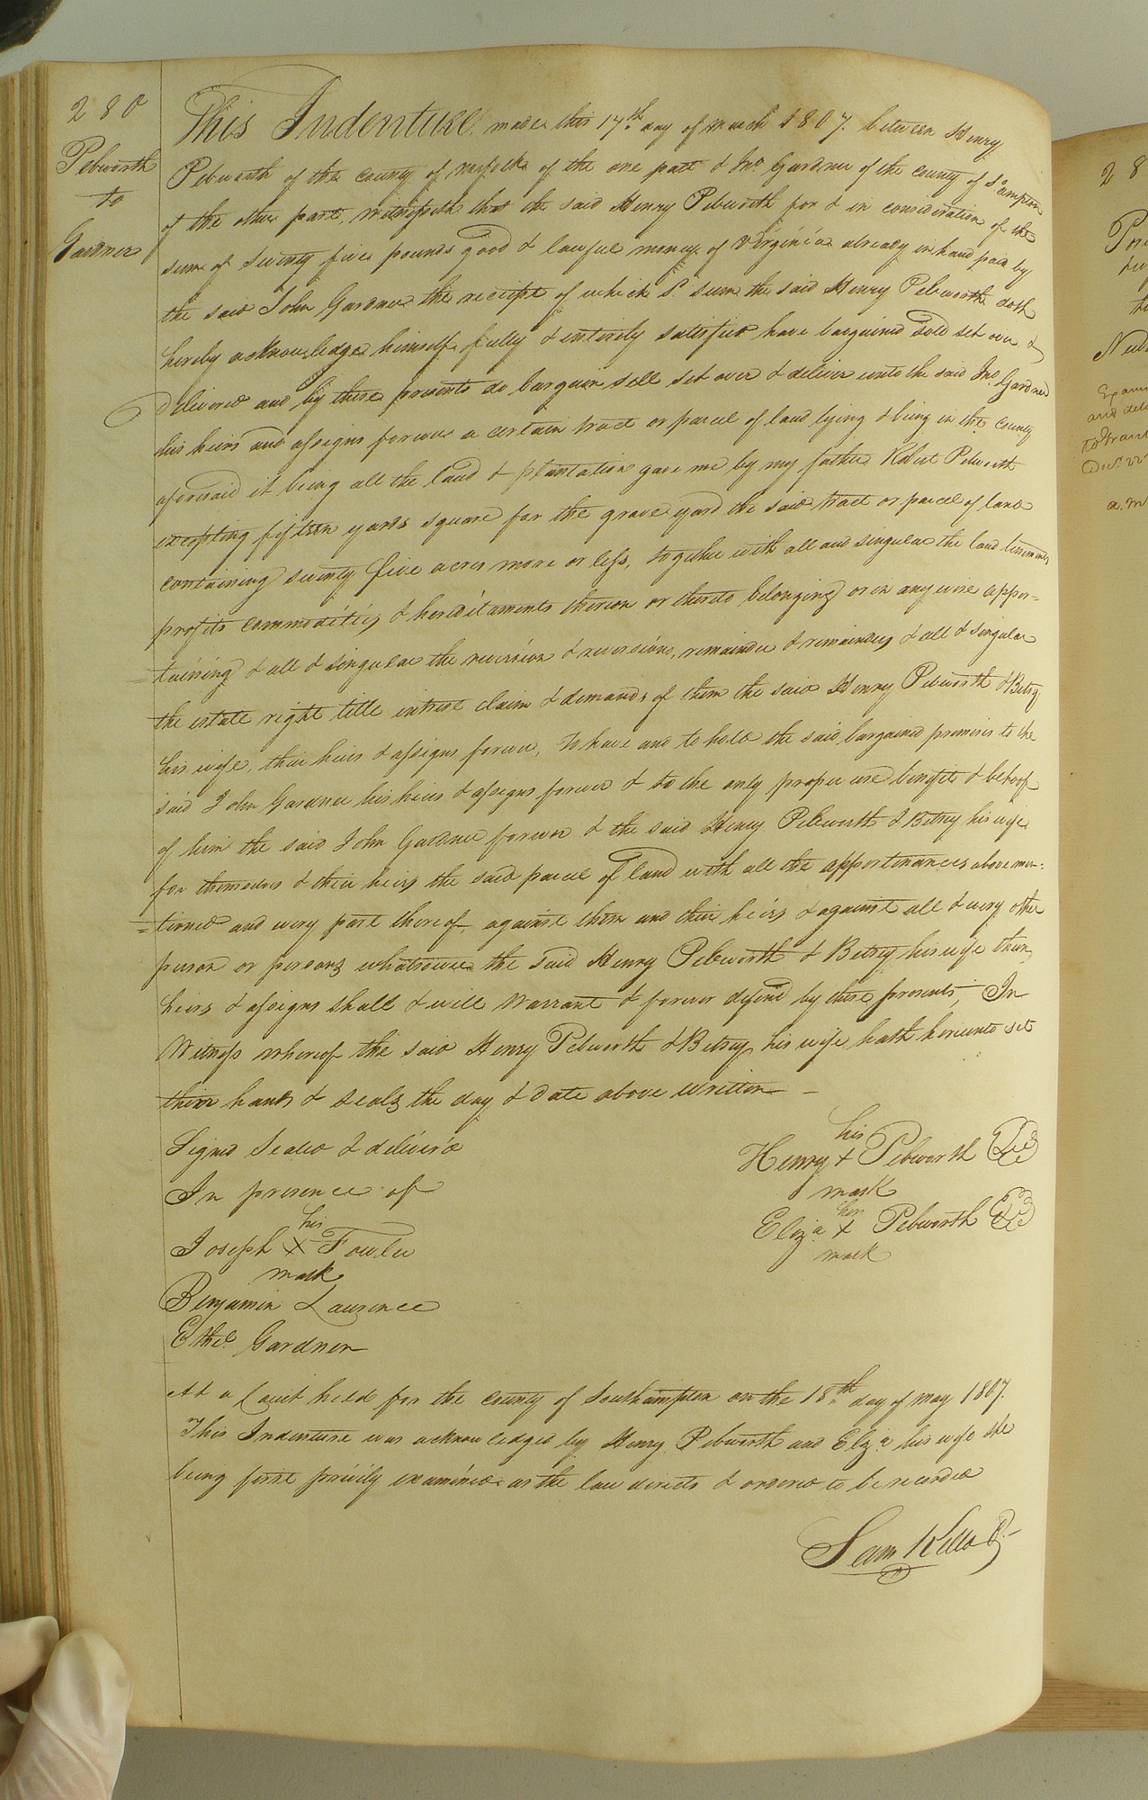 280
Pebworth
to
Gardner
This Indenture made this 17th day of March 1807. between Henry
Pebworth of the county of Norfolk of the one part & Jno. Gardner of the county of So.ampton
of the other part, witnesseth that the said Henry Pebworth for & in consideration of the
sum of seventy five pounds good & lawful money of Virginia already in hand paid by
the said John Gardner the receipt of which sd. sum the said Henry Pebworth doth
hereby acknowledge himself fully & entirely satisfied have bargained sold set over &
delivered and by these presents do bargain sell set over & deliver unto the said Jno. Gardner
his heirs and assigns forever a certain tract or parcel of land lying & being in the County
aforesaid it being all the land & plantation gave me by my father Robert Pebworth
excepting fifteen yards square for the grave yard the said tract or parcel of land
containing seventy five acres more or less, together with all and singular the land tenements
profits commodities & hereditaments thereon or thereto belonging or in any wise apper=
taining & all & singular the reversion & reversions, remainder & remainders & all & singular
the estate right title intrest claim & demands of them the said Henry Pebworth & Betsy
his wife, their heirs & assigns forever, To have and to hold the said bargained premises to the
said John Gardner his heirs & assigns forever & to the only proper use benefit & behoof
of him the said John Gardner forever & the said Henry Pebworth & Betsey his wife
for themselves & their heirs the said parcel of land with all the appertinances above men=
=tioned and every part thereof against them and their heirs & against all & every other
person or persons whatsoever the said Henry Pebworth & Betsey his wife their
heirs & assigns shall & will warrant & forever defend by these presents, In
Witness whereof the said Henry Pebworth & Betsey his wife hath hereunto set
their hands & seals the day & date above written —
Signed Sealed & deliver'd
In presence of
his
Joseph X Fowler
mark
Benjamin Laurence
Ethel. Gardner
his
Henry + Pebworth
mark
her
Eliza + Pebworth
mark
At a Court held for the county of Southampton on the 18th day of may 1807.
This Indenture was acknowledged by Henry Pebworth and Eliza his wife she
being first privily examined as the law directs & ordered to be recorded
Sam Kello C.
28